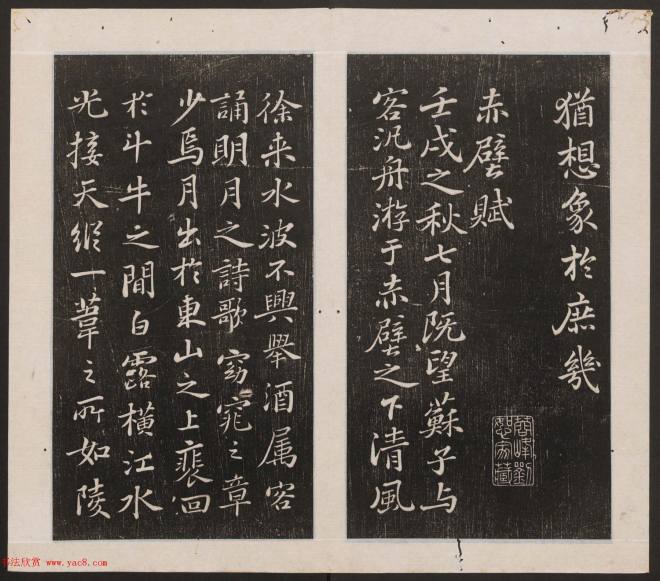 猶想象於庶幾
赤壁賦
壬戌之秋七月既望蘇子与
客汎舟游于赤壁之下清風
徐来水波不興舉酒属客
誦明月之詩歌窈窕之章
少焉月出於東山之上裵回
於斗牛之間白露橫江水
光接天縱一葦之所如陵
书法欣赏 www.yac8.com